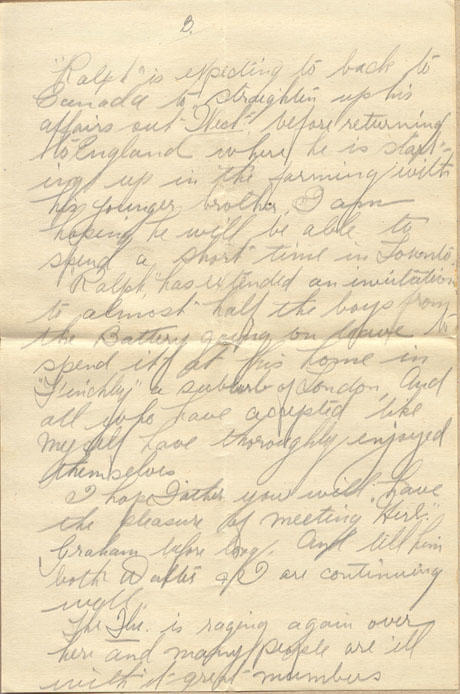 3.
"Ralph" is expecting to back to
Canada to straightin up his
affairs out "West" before returning
to England where he is start-
ing up in the farming with
his younger brother, I am
hoping he will be able to
spend a short time in Toronto.
"Ralph" has extended an invitation
to almost half the boys from
the Battery going on leave to
spend it at his home in
"Finchley" a suburb of London, And
all who have accepted, like
Myself have thoroughly enjoyed
themselves
I hope Father you will have
the pleasure of meeting
Graham before long. And tell him
both Walter & I are continuing
well.
The Flu. is raging again over
here and many people are ill
with it great numbers